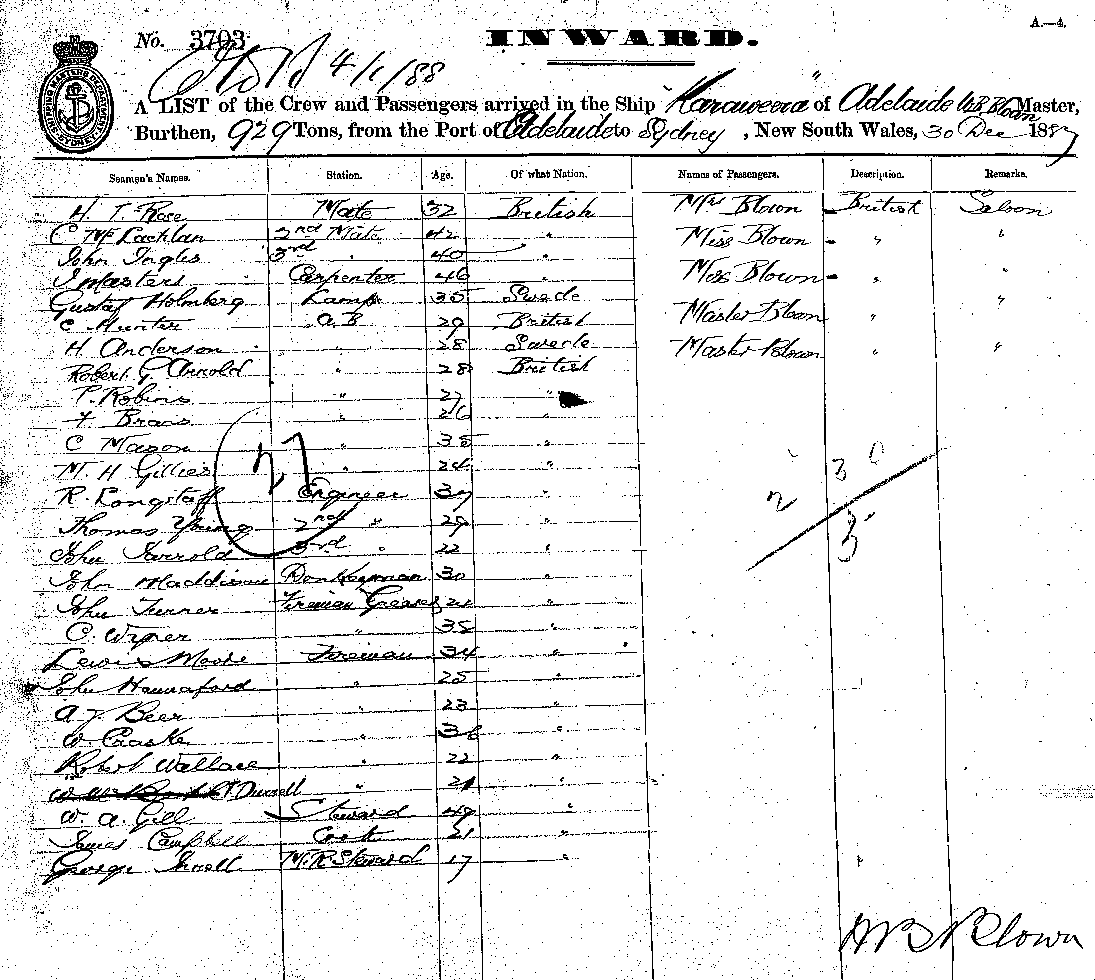 A.—4.
No. 3703.
INWARD.
4/1/88
A LIST of the Crew and Passengers arrived in the Ship Karaweera of Adelaide W B Blown Master,
Burthen, 929 Tons, from the Port of Adelaide to Sydney, New South Wales, 30 Dec 1887
Seamen's Names. Station. Age. Of what Nation. Names of Passengers. Description. Remarks.
H. T. Rose Mate 32 British Mrs Blown British Saloon
C McLachlan 2nd Mate 42 " Miss Blown " "
John Ingles 3rd " 40 "
J Masters Carpenter 46 " Miss Blown " "
Gustaf Holmberg Lamps 35 Swede
C Hunter A B 29 British Master Blown " "
H. Anderson " 28 Swede Master Blown " "
Robert G Arnold " 28 British
P. Robins " 27 "
F Brans " 26 "
C Mason " 35 "
M. H Gillies " 24 "
27
R. Longstaff Engineer 37 "
Thomas Young 2nd " 29 "
30
2
5
John 3rd " 22 "
John Maddison Donkeyman 30 "
John Turner Fireman Greaser 24 "
C. Wyner " 38 "
Lewis Moore Fireman 34 "
John Hannaford " 25 "
A. J. Beer " 23 "
W. " 36 "
Robert Wallace " 22 "
Durrell " 21 "
W. A. Gill Steward 49 "
James Campbell Cook 21 "
George M.R. Steward 17 "
H B Blown